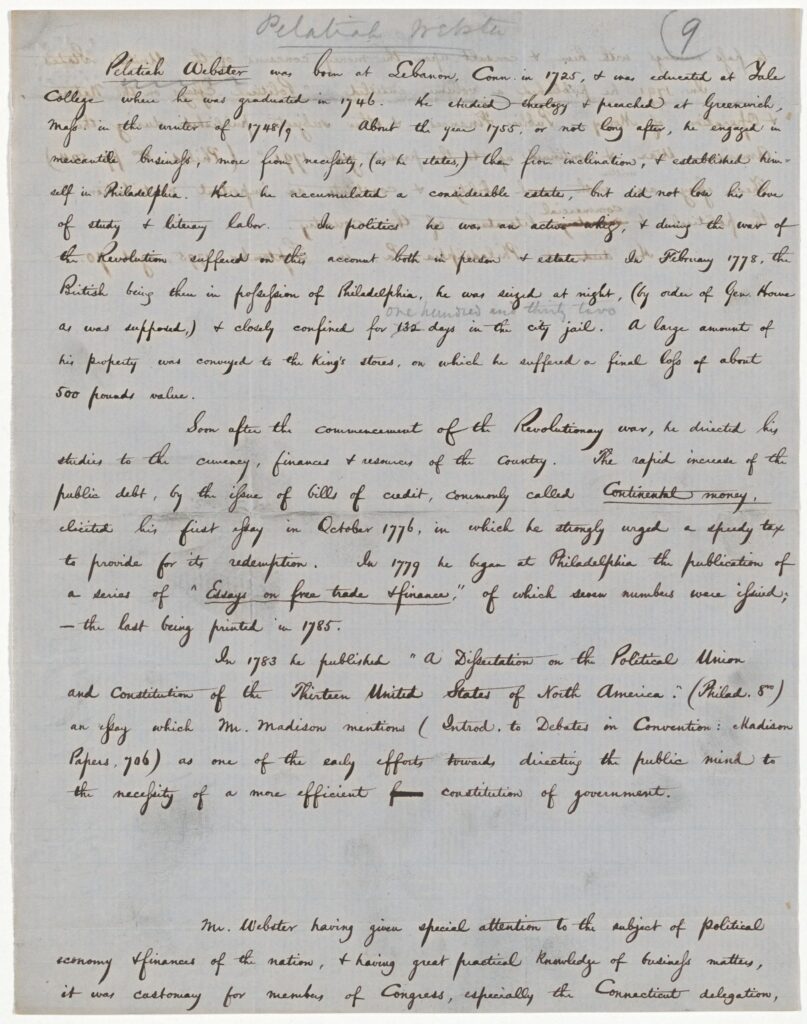 Pelatiah Webster
9
Pelatiah Webster was born at Lebanon, Conn. in 1725, & was educated at Yale
College where he was graduated in 1746. He studied theology & preached at Greenwich,
Mass in the winter of 1748/9. About the year 1755, or not long after, he engaged in
mercantile business, more from necessity, (as he states,) than from inclination, & established him-
self in Philadelphia. Here he accumulated a considerable estate, but did not lose his love
of study & literary labor. In politics he was an active whig, & during the war of
the Revolution suffered on this account both in person & estate. In February 1778, the
British being then in possession of Philadelphia, he was seized at night, (by order of Gen. Howe
one hundred and thirty two
as was supposed,) & closely confined for 132 days in the city jail. A large amount of
his property was conveyed to the King's stores, on which he suffered a final loss of about
500 pounds value.
Soon after the commencement of the Revolutionary war, he directed his
studies to the currency, finances & resources of the country. The rapid increase of the
public debt, by the issue of bills of credit, commonly called Continental money,
elicited his first essay in October 1776, in which he strongly urged a speedy tax
to provide for its redemption. In 1779 he began at Philadelphia the publication of
a series of "Essays on free trade & finance," of which seven numbers were issued;
— the last being printed in 1785.
In 1783 he published "A Dissertation on the Political Union
and Constitution of the Thirteen United States of North America." (Philad. 8vo)
an essay which Mr. Madison mentions (Introd. to Debates in Convention: Madison
Papers, 706) as one of the early efforts towards directing the public mind to
the necessity of a more efficient constitution of government.
Mr. Webster having given special attention to the subject of political
economy & finances of the nation, & having great practical knowledge of business matters,
it was customay for members of Congress, especially the Connecticut delegation,